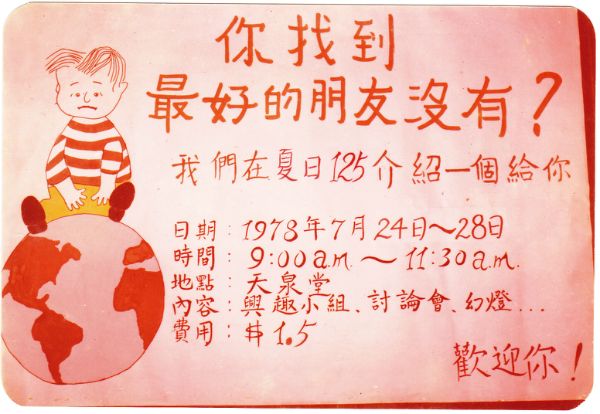 你找到
最好的朋友沒有？
我們在夏日125介紹一個給你
日期：1978年7月24日～28日
時間：9:00a.m.～11:30a.m.
地點：天泉堂
內容：興趣小組、討論會、幻燈...
費用：$1.5
歡迎你！